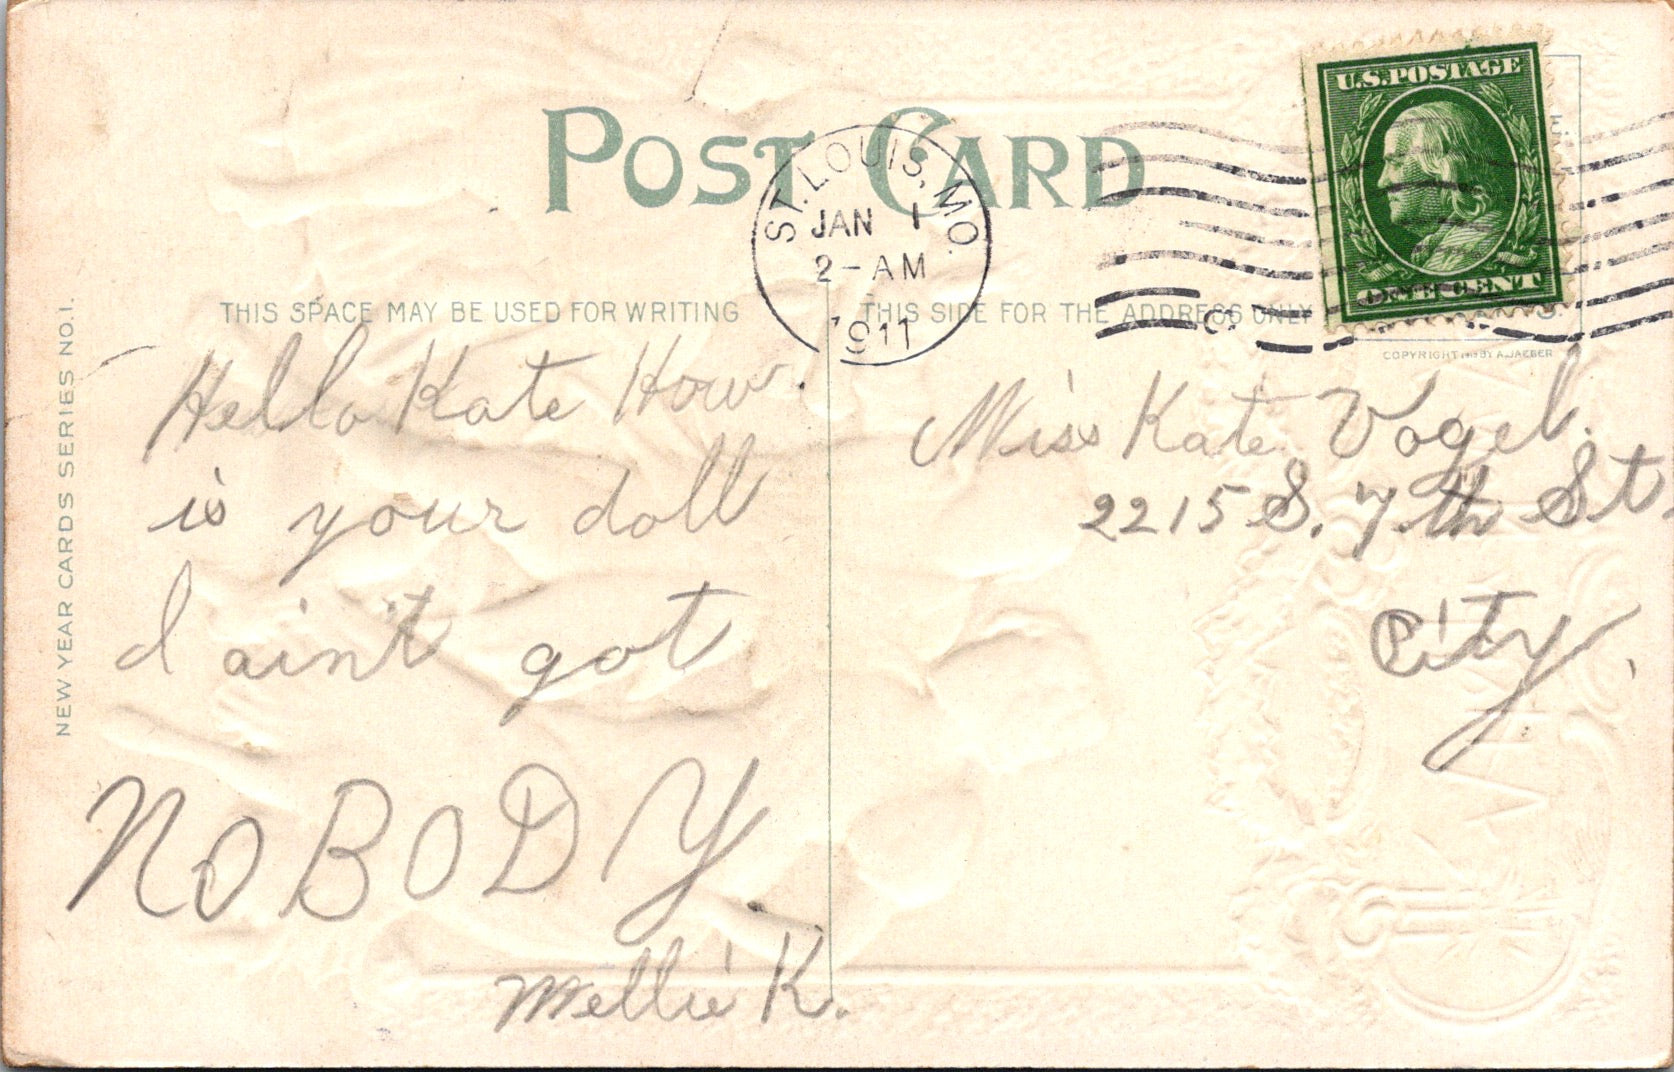 POST CARD
U.S.POSTAGE
ONE CENT
ST. LOUIS, MO.
JAN 1
2-AM
1911
THIS SPACE MAY BE USED FOR WRITING
THIS SIDE FOR THE ADDRESS ONLY
COPYRIGHT BY A. JAEGER
NEW YEAR CARDS SERIES NO.1.
Hello Kate How
is your doll
I ain't got
NOBODY
Mellie K.
Miss Kate Vogel.
2215 S. 7th St.
City.